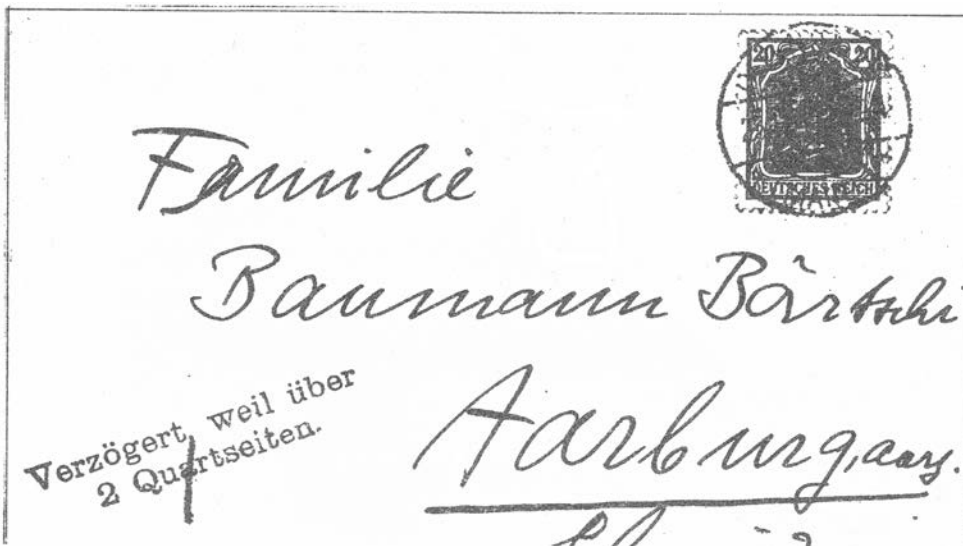 20 20
DEUTSCHES REICH
Familie
Baumann Bärtschi
Aarburg, aarg.
Verzögert, weil über
2 Quartseiten.